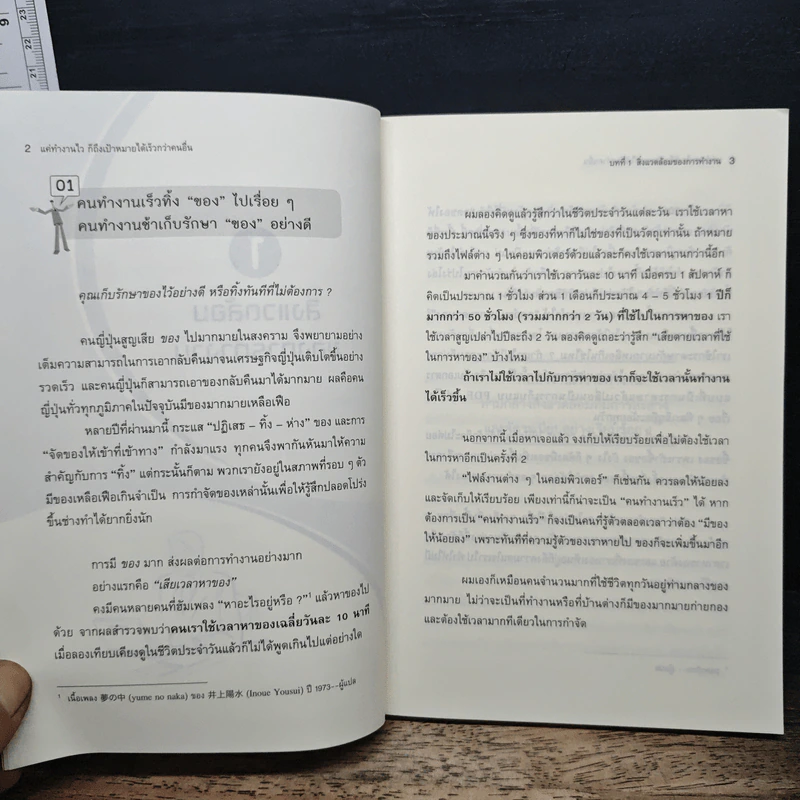 2 แค่ทำงานไว ก็ถึงเป้าหมายได้เร็วกว่าคนอื่น
01
คนทำงานเร็วทิ้ง “ของ” ไปเรื่อย ๆ
คนทำงานช้าเก็บรักษา “ของ” อย่างดี
คุณเก็บรักษาของไว้อย่างดี หรือทิ้งทันทีที่ไม่ต้องการ ?
คนญี่ปุ่นสูญเสีย ของ ไปมากมายในสงคราม จึงพยายามอย่าง
เต็มความสามารถในการเอากลับคืนมาจนเศรษฐกิจญี่ปุ่นเติบโตขึ้นอย่าง
รวดเร็ว และคนญี่ปุ่นก็สามารถเอาของกลับคืนมาได้มากมาย ผลคือคน
ญี่ปุ่นทั่วทุกภูมิภาคในปัจจุบันมีของมากมายเหลือเฟือ
หลายปีที่ผ่านมานี้ กระแส “ปฏิเสธ – ทิ้ง – ห่าง” ของ และการ
“จัดของให้เข้าที่เข้าทาง” กำลังมาแรง ทุกคนจึงพากันหันมาให้ความ
สำคัญกับการ “ทิ้ง” แต่กระนั้นก็ตาม พวกเรายังอยู่ในสภาพที่รอบ ๆ ตัว
มีของเหลือเฟือเกินจำเป็น การกำจัดของเหล่านั้นเพื่อให้รู้สึกปลอดโปร่ง
ขึ้นช่างทำได้ยากยิ่งนัก
การมี ของ มาก ส่งผลต่อการทำงานอย่างมาก
อย่างแรกคือ “เสียเวลาหาของ”
คงมีคนหลายคนที่ฮัมเพลง “หาอะไรอยู่หรือ ?”¹ แล้วหาของไป
ด้วย จากผลสำรวจพบว่าคนเราใช้เวลาหาของเฉลี่ยวันละ 10 นาที
เมื่อลองเทียบเคียงดูในชีวิตประจำวันแล้วก็ไม่ได้พูดเกินไปแต่อย่างใด
¹ เนื้อเพลง 夢の中 (yume no naka) ของ 井上陽水 (Inoue Yousui) ปี 1973--ผู้แปล
บทที่ 1 สิ่งแวดล้อมของการทำงาน 3
ผมลองคิดดูแล้วรู้สึกว่าในชีวิตประจำวันแต่ละวัน เราใช้เวลาหา
ของประมาณนี้จริง ๆ ซึ่งของที่หาก็ไม่ใช่ของที่เป็นวัตถุเท่านั้น ถ้าหมาย
รวมถึงไฟล์ต่าง ๆ ในคอมพิวเตอร์ด้วยแล้วละก็คงใช้เวลานานกว่านี้อีก
มาคำนวณกันว่าเราใช้เวลาวันละ 10 นาที เมื่อครบ 1 สัปดาห์ ก็
คิดเป็นประมาณ 1 ชั่วโมง ส่วน 1 เดือนก็ประมาณ 4 – 5 ชั่วโมง 1 ปีก็
มากกว่า 50 ชั่วโมง (รวมมากกว่า 2 วัน) ที่ใช้ไปในการหาของ เรา
ใช้เวลาสูญเปล่าไปปีละถึง 2 วัน ลองคิดดูเถอะว่ารู้สึก “เสียดายเวลาที่ใช้
ในการหาของ” บ้างไหม
ถ้าเราไม่ใช้เวลาไปกับการหาของ เราก็จะใช้เวลานั้นทำงาน
ได้เร็วขึ้น
นอกจากนี้ เมื่อหาเจอแล้ว จงเก็บให้เรียบร้อยเพื่อไม่ต้องใช้เวลา
ในการหาอีกเป็นครั้งที่ 2
“ไฟล์งานต่าง ๆ ในคอมพิวเตอร์” ก็เช่นกัน ควรลดให้น้อยลง
และจัดเก็บให้เรียบร้อย เพียงเท่านี้ก็น่าจะเป็น “คนทำงานเร็ว” ได้ หาก
ต้องการเป็น “คนทำงานเร็ว” ก็จงเป็นคนที่รู้ตัวตลอดเวลาว่าต้อง “มีของ
ให้น้อยลง” เพราะทันทีที่ความรู้ตัวของเราหายไป ของก็จะเพิ่มขึ้นมาอีก
ผมเองก็เหมือนคนจำนวนมากที่ใช้ชีวิตทุกวันอยู่ท่ามกลางของ
มากมาย ไม่ว่าจะเป็นที่ทำงานหรือที่บ้านต่างก็มีของมากมายก่ายกอง
และต้องใช้เวลามากทีเดียวในการกำจัด